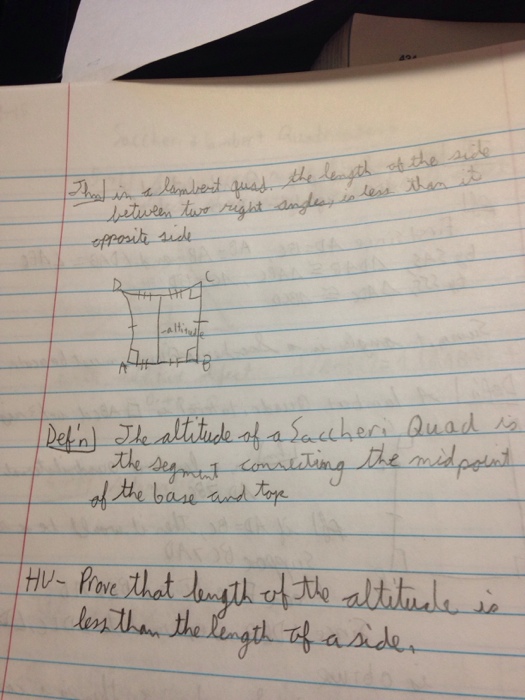 Thm] in a lambert quad. the length of the side
between two right angles, is less than it
opposite side
D
C
altitude
A
B
Def'n] The altitude of a Saccheri Quad is
the segment connecting the midpoint
of the base and top
HW- Prove that length of the altitude is
less than the length of a side.